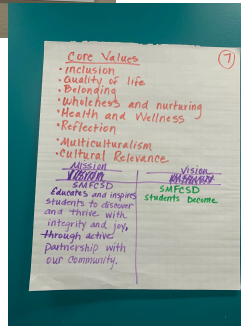 Core Values
7
• inclusion
• Quality of life
• Belonging
• Wholeness and nurturing
• Health and Wellness
• Reflection
• Multiculturalism
• Cultural Relevance
Mission
SMFCSD
Educates and inspires
students to discover
and thrive with
integrity and joy,
through active
partnership with
our community.
Vision
SMFCSD
Students Become